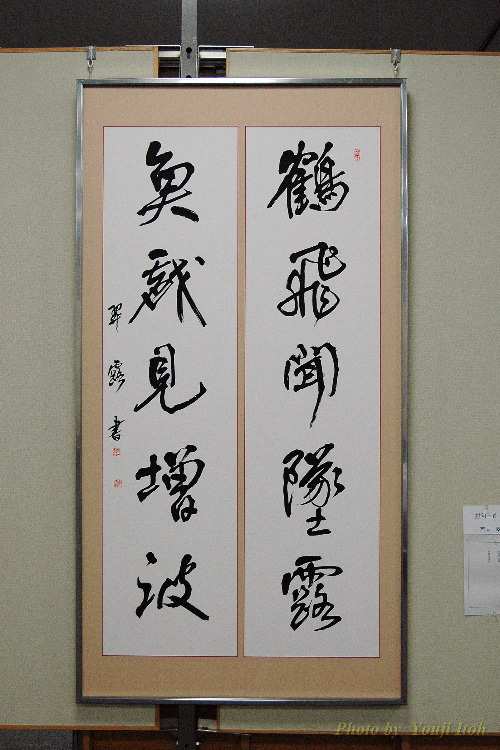 鶴飛聞墜露
魚戯見増波
翠露書
Photo by Youji Itoh